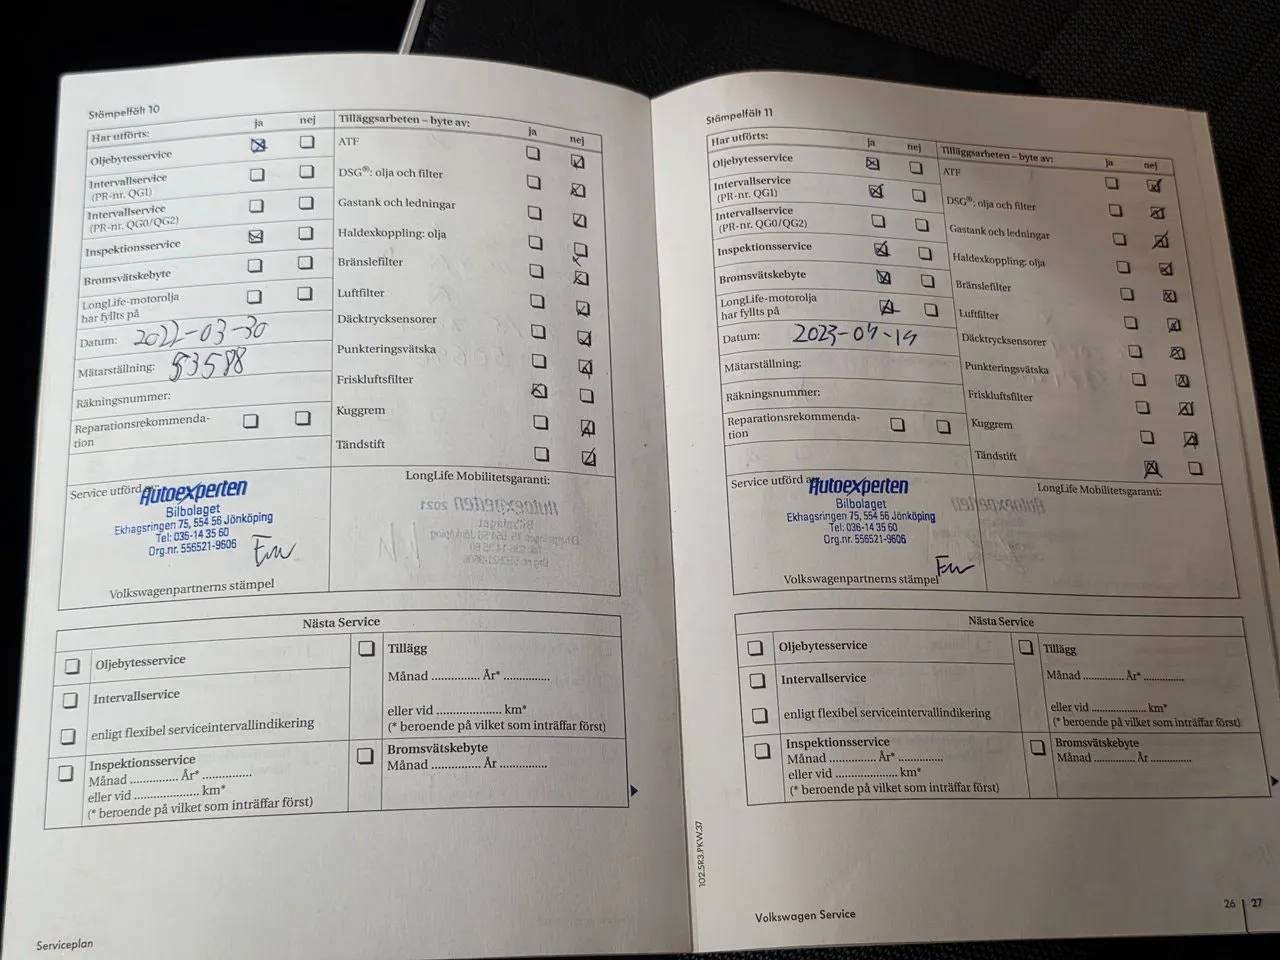 Stämpelfält 10
Har utförts: ja nej
Oljebytesservice
Intervallservice
(PR-nr. QG1)
Intervallservice
(PR-nr. QG0/QG2)
Inspektionsservice
Bromsvätskebyte
LongLife-motorolja
har fyllts på
Datum: 2022-03-30
Mätarställning: 53588
Räkningsnummer:
Reparationsrekommenda-
tion
Tilläggsarbeten – byte av: ja nej
ATF
DSG®: olja och filter
Gastank och ledningar
Haldexkoppling: olja
Bränslefilter
Luftfilter
Däcktrycksensorer
Punkteringsvätska
Friskluftsfilter
Kuggrem
Tändstift
Service utförd av:
Autoexperten
Bilbolaget
Ekhagsringen 75, 554 56 Jönköping
Tel: 036-14 35 60
Org.nr. 556521-9606
Volkswagenpartnerns stämpel
LongLife Mobilitetsgaranti:
Nästa Service
Oljebytesservice
Intervallservice
enligt flexibel serviceintervallindikering
Inspektionsservice
Månad .............. År* ..............
eller vid .................... km*
(* beroende på vilket som inträffar först)
Tillägg
Månad .............. År* ..............
eller vid .................... km*
(* beroende på vilket som inträffar först)
Bromsvätskebyte
Månad .............. År ..............
Serviceplan
Stämpelfält 11
Har utförts: ja nej
Oljebytesservice
Intervallservice
(PR-nr. QG1)
Intervallservice
(PR-nr. QG0/QG2)
Inspektionsservice
Bromsvätskebyte
LongLife-motorolja
har fyllts på
Datum: 2023-04-14
Mätarställning:
Räkningsnummer:
Reparationsrekommenda-
tion
Tilläggsarbeten – byte av: ja nej
ATF
DSG®: olja och filter
Gastank och ledningar
Haldexkoppling: olja
Bränslefilter
Luftfilter
Däcktrycksensorer
Punkteringsvätska
Friskluftsfilter
Kuggrem
Tändstift
Service utförd av:
Autoexperten
Bilbolaget
Ekhagsringen 75, 554 56 Jönköping
Tel: 036-14 35 60
Org.nr. 556521-9606
Volkswagenpartnerns stämpel
LongLife Mobilitetsgaranti:
Nästa Service
Oljebytesservice
Intervallservice
enligt flexibel serviceintervallindikering
Inspektionsservice
Månad .............. År* ..............
eller vid .................... km*
(* beroende på vilket som inträffar först)
Tillägg
Månad .............. År* ..............
eller vid .................... km*
(* beroende på vilket som inträffar först)
Bromsvätskebyte
Månad .............. År ..............
102.5R3.PKW.37
Volkswagen Service
26 | 27